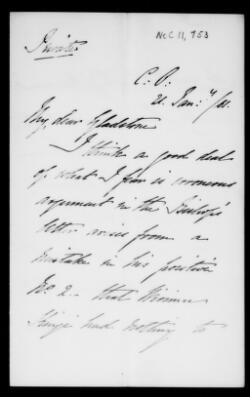 NeC 11,753
Private
C. O.
21 Jan:y /61.
My dear Gladstone
I think a good deal
of what I fear is erroneous
argument in the Bishop's
letter arises from a
mistake in his position
No 2. – that
had nothing to